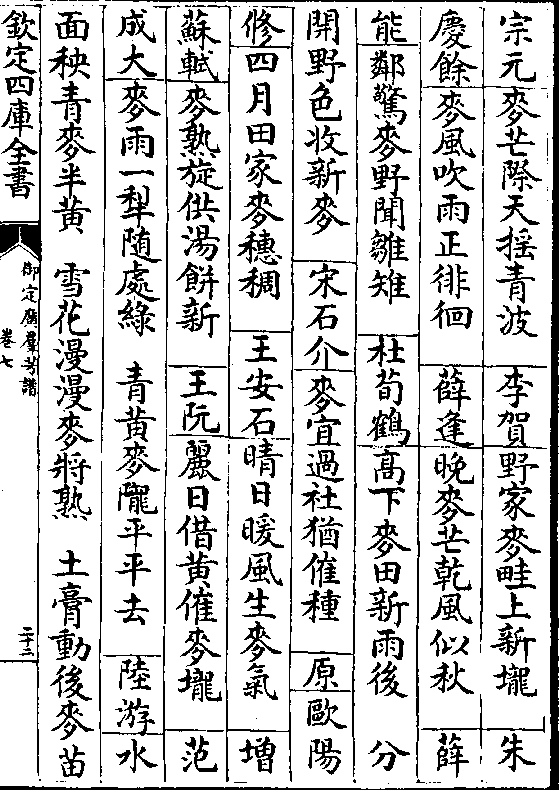 宗元麥芒際天揺青波　李賀野家麥畦上新壠　朱
慶餘麥風吹雨正徘徊　薛逢晚麥芒乾風似秋　薛
能鄰驚麥野聞雛雉　杜荀鶴髙下麥田新雨後　分
開野色收新麥　宋石介麥宜過社猶催種　原歐陽
修四月田家麥穗稠　王安石晴日暖風生麥氣　增
蘇軾麥熟旋供湯餅新　王阮麗日借黄催麥壠　范
成大麥雨一犁隨處綠　青黄麥隴平平去　陸游水
面秧青麥半黄　雪花漫漫麥將熟　土膏動後麥苗
欽定四庫全書
御定廣羣芳譜
卷七
二十三